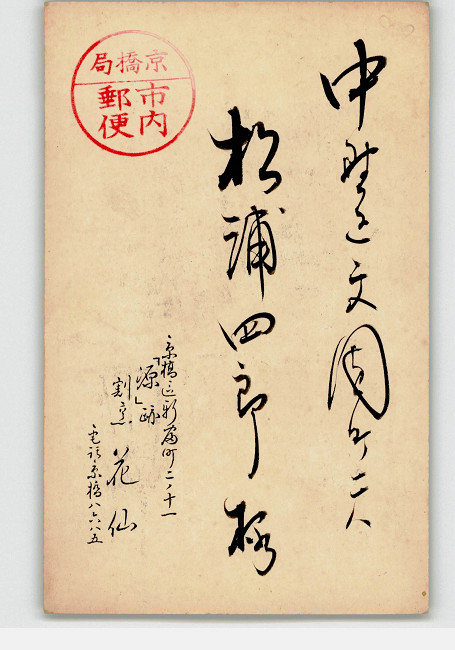 京橋局
市内
郵便
中野区文園町二八
松浦四郎様
京橋区新富町二ノ十一
「源」跡
割烹 花仙
電話京橋八六八五